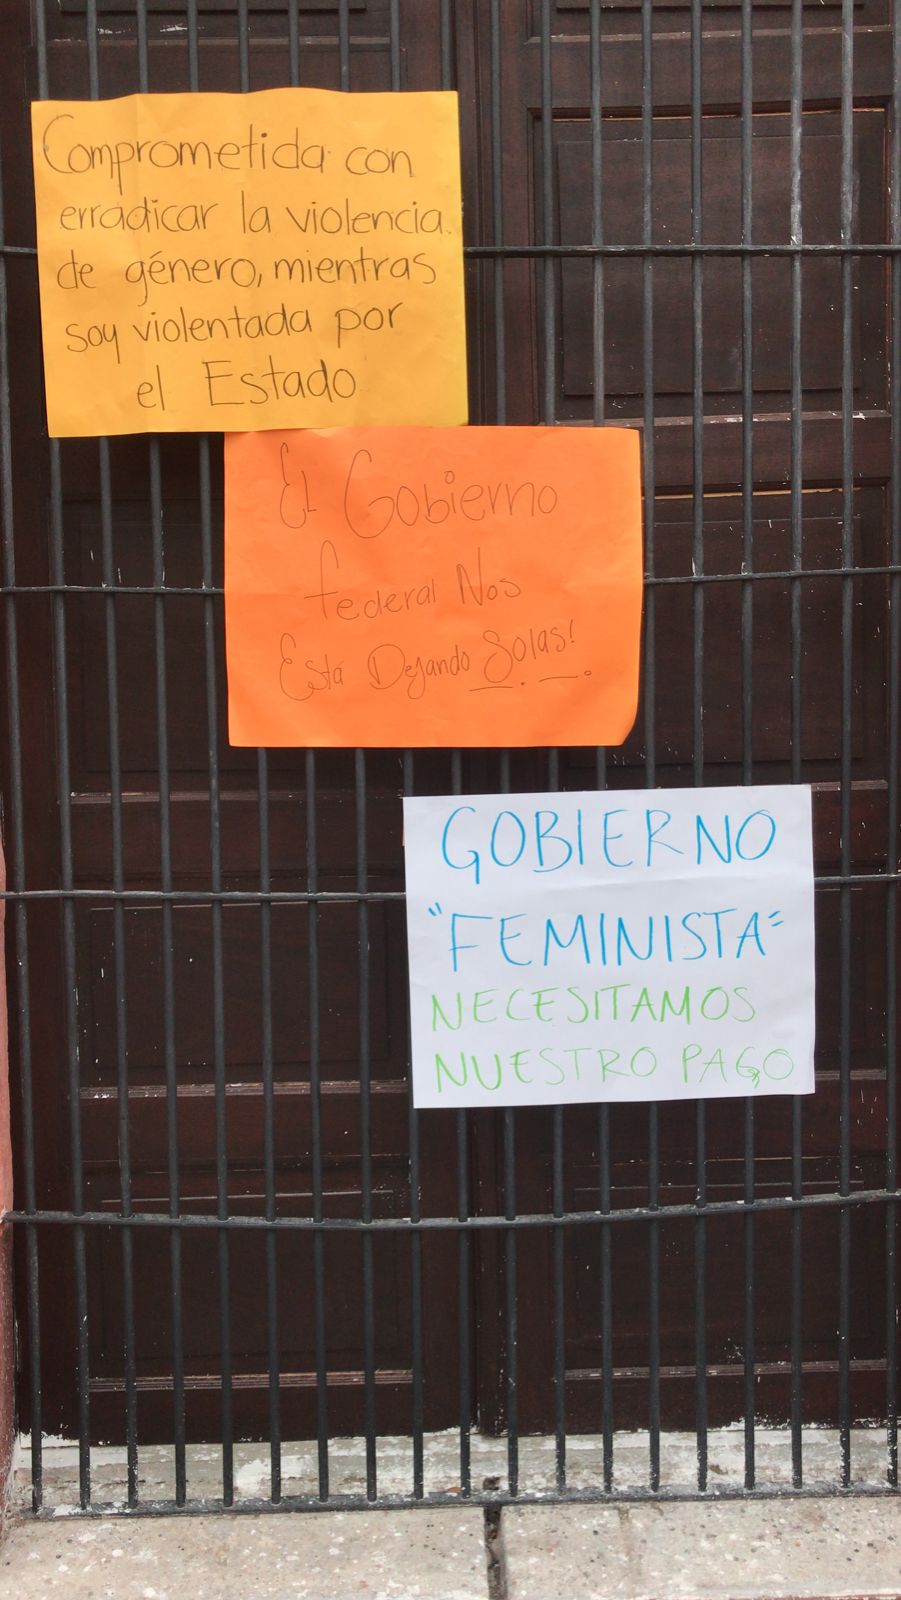 Comprometida con
erradicar la violencia
de género, mientras
soy violentada por
el Estado
El Gobierno
federal Nos
Está Dejando Solas!
GOBIERNO
"FEMINISTA"
NECESITAMOS
NUESTRO PAGO